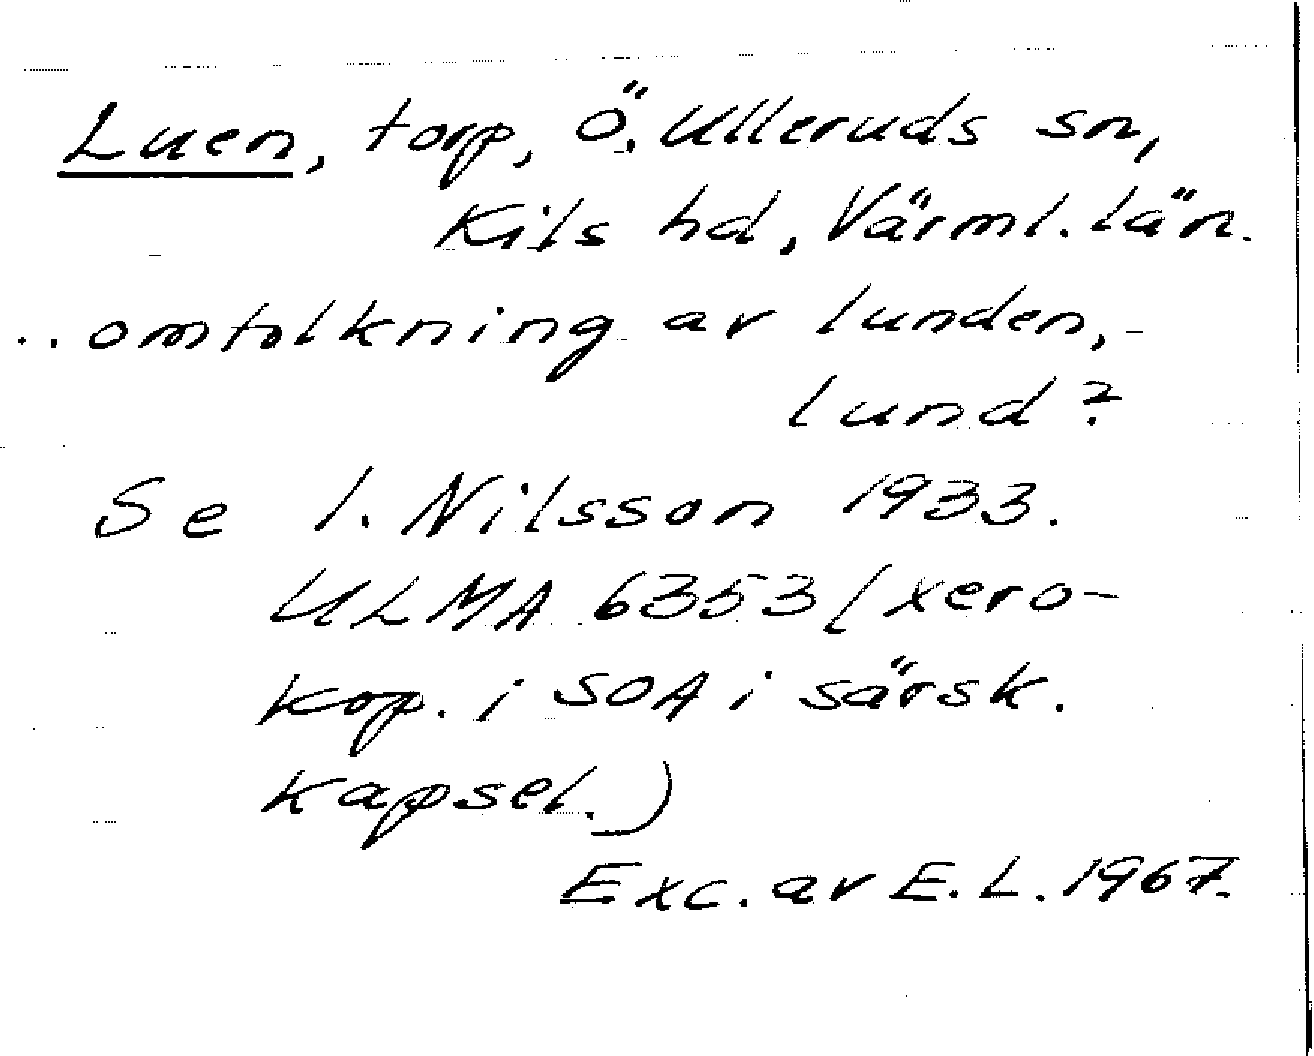 Luen, torp, Ö. Ulleruds sn,
Kils hd, Värml. län.
.. omtolkning av lunden,-
lund?
Se I. Nilsson 1933.
ULMA 6353 (xero-
kop. i SOA i särsk.
kapsel.)
Exc. av E. L. 1967.